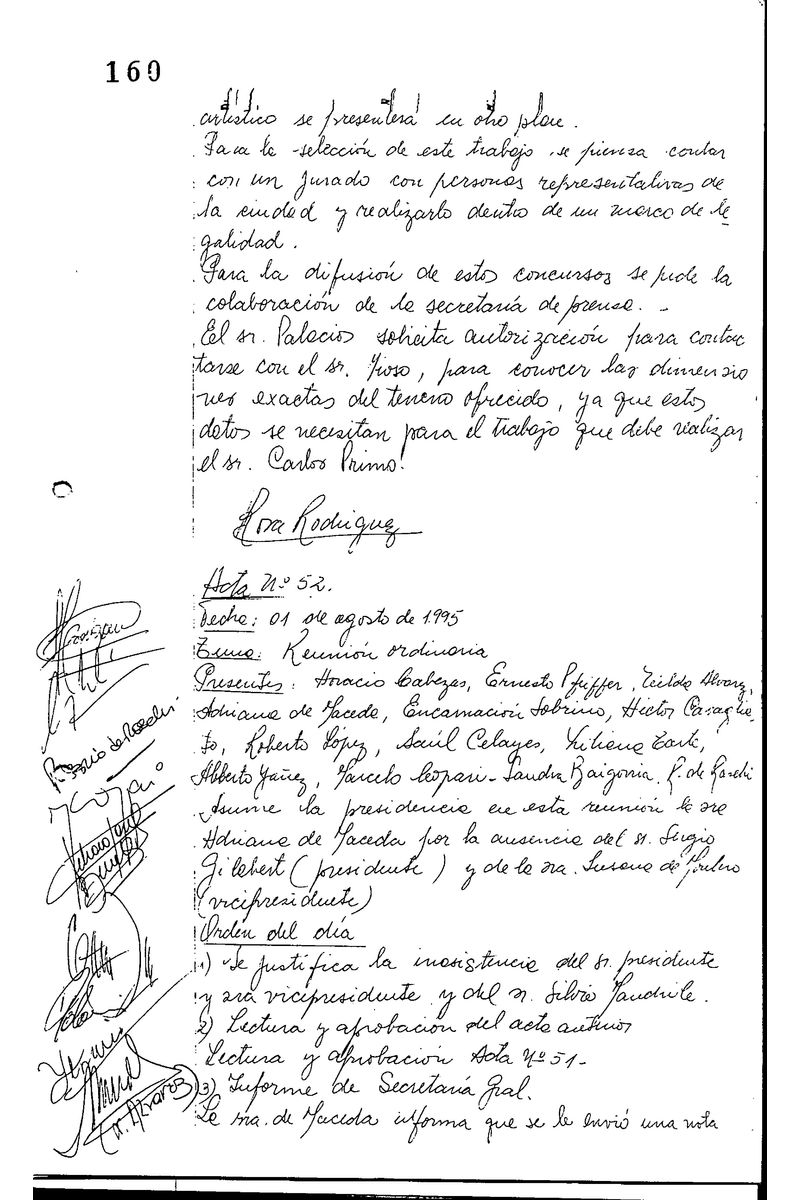 160
artístico se presentará en otro plan.
Para la selección de este trabajo se piensa contar
con un Jurado con personas representativas de
la ciudad y realizarlo dentro de un marco de le
galidad.
Para la difusión de estos concursos se pide la
colaboración de la secretaría de prensa. -
El sr. Palacios solicita autorización para contac
tarse con el sr. , para conocer las dimensio
nes exactas del terreno ofrecido, ya que estos
datos se necesitan para el trabajo que debe realizar
el sr. Carlos Primo.
Rosa Rodriguez
Acta Nº 52.
Fecha: 01 de agosto de 1995
Tema: Reunión ordinaria
Presentes: Horacio Cabezas, Ernesto Pfeiffer, Tilda Alvarez,
Adriana de Maceda, Encarnación Sobrino, Héctor Casaglia
, Roberto López, Saúl Celayes, Liliana
Alberto Yáñez, Marcelo Leopari - Sandra Baigorria. R. de Raschi
Asume la presidencia en esta reunión la sra
Adriana de Maceda por la ausencia del sr. Sergio
Gilabert (presidente) y de la sra. Susana de
(vicepresidente)
Orden del día
1) Se justifica la inasistencia del sr. presidente
y sra vicepresidente y del sr. Silvio Mandrile.
2) Lectura y aprobación del acta anterior
Lectura y aprobación Acta Nº 51-
3) Informe de Secretaría Gral.
La sra. de Maceda informa que se le envió una nota
Rosario de Raschi
Alvarez